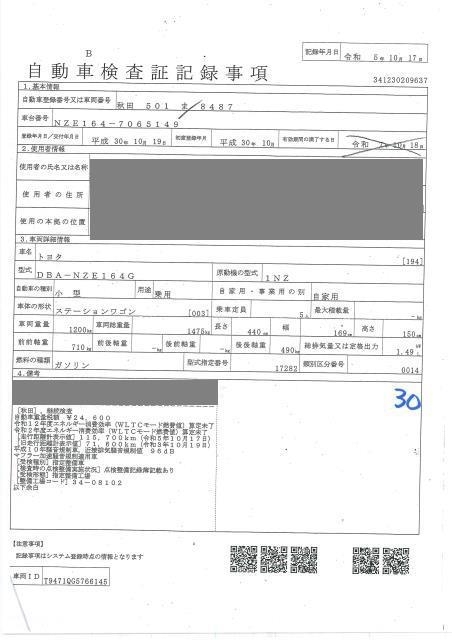 B
記録年月日 令和 5年10月17日
自動車検査証記録事項
341230209637
1.基本情報
自動車登録番号又は車両番号 秋田 501 ま 8487
車台番号 NZE164-7065149
登録年月日/交付年月日 平成 30年10月19日 初度登録年月 平成 30年10月 有効期間の満了する日 令和 7年10月18日
2.使用者情報
使用者の氏名又は名称
使用者の住所
使用の本拠の位置
3.車両詳細情報
車名 トヨタ [194]
型式 DBA-NZE164G 原動機の型式 1NZ
自動車の種別 小型 用途 乗用 自家用・事業用の別 自家用
車体の形状 ステーションワゴン [003] 乗車定員 5人 最大積載量 -kg
車両重量 1200kg 車両総重量 1475kg 長さ 440cm 幅 169cm 高さ 150cm
前前軸重 710kg 前後軸重 -kg 後前軸重 -kg 後後軸重 490kg 総排気量又は定格出力 1.49L
燃料の種類 ガソリン 型式指定番号 17282 類別区分番号 0014
4.備考
30
[秋田],継続検査
自動車重量税額 ¥24,600
令和12年度エネルギー消費効率(WLTCモード燃費値)算定未了
令和2年度エネルギー消費効率(WLTCモード燃費値)算定未了
[走行距離計表示値]115,700km(令和5年10月17日)
[旧走行距離計表示値]71,600km(令和3年10月19日)
平成10年騒音規制車,近接排気騒音規制値 96dB
マフラー加速騒音規制適用車
[受検種別]指定整備車
[検査時の点検整備実施状況]点検整備記録簿記載あり
[受検形態]指定整備工場
[整備工場コード]34-08102
以下余白
【注意事項】
記録事項はシステム登録時点の情報となります
車両ID T9471QG5766145